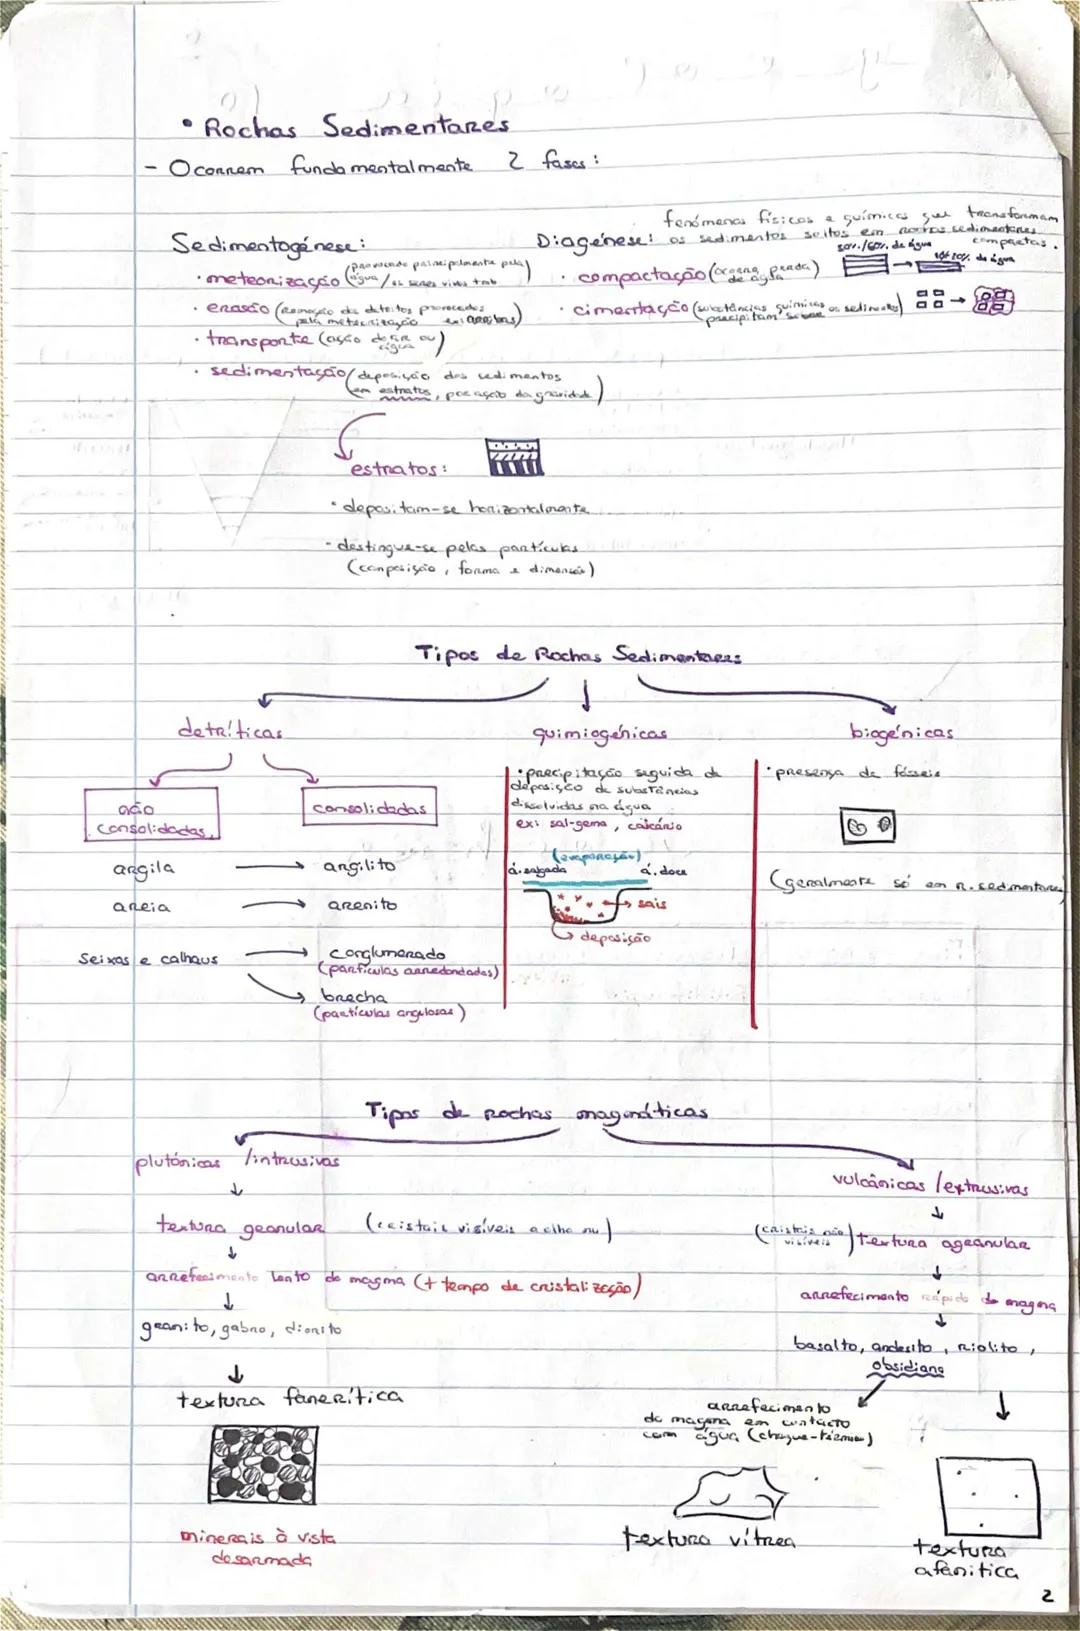 • Rochas Sedimentares
- Ocorrem fundamentalmente 2 fases:
Sedimentogénese:
• meteorização (provocada principalmente pela
água / os seres vivos tmb)
• erosão (Remoção de detritos provocados
pela meteorização ex: arribas)
• transporte (ação do ar ou
água)
• sedimentação (deposição dos sedimentos
em estratos, por ação da gravidade)
Diagénese: fenómenos físicos e químicos que transformam
os sedimentos soltos em rochas sedimentares
compactas.
• compactação (ocorre perda
de água)
50%/60% de água
10% 20% de água
• cimentação (substâncias químicas
precipitam sobre os sedimentos)
estratos:
• depositam-se horizontalmente
- destingue-se pelas partículas
(composição, forma e dimensão)
Tipos de Rochas Sedimentares
detríticas
quimiogénicas
biogénicas
não
consolidadas
consolidadas
argila → argilito
areia → arenito
Seixos e calhaus → conglomerado
(partículas arredondadas)
→ brecha
(partículas angulosas)
• precipitação seguida de
deposição de substâncias
dissolvidas na água
ex: sal-gema, calcário
(evaporação)
á. salgada
á. doce
→ sais
→ deposição
• presença de fósseis
(geralmente só em R. sedimentares)
Tipos de rochas magmáticas
plutónicas /intrusivas
↓
textura granular (cristais visíveis a olho nu)
↓
arrefecimento lento do magma (+ tempo de cristalização)
↓
granito, gabro, diorito
↓
textura fanerítica
minerais à vista
desarmada
vulcânicas /extrusivas
↓
(cristais não
visíveis) textura agranular
↓
arrefecimento rápido do magma
↓
basalto, andesito, riolito,
obsidiana
arrefecimento
do magma em contacto
com água (choque-térmico)
textura vítrea
textura
afanitica
2